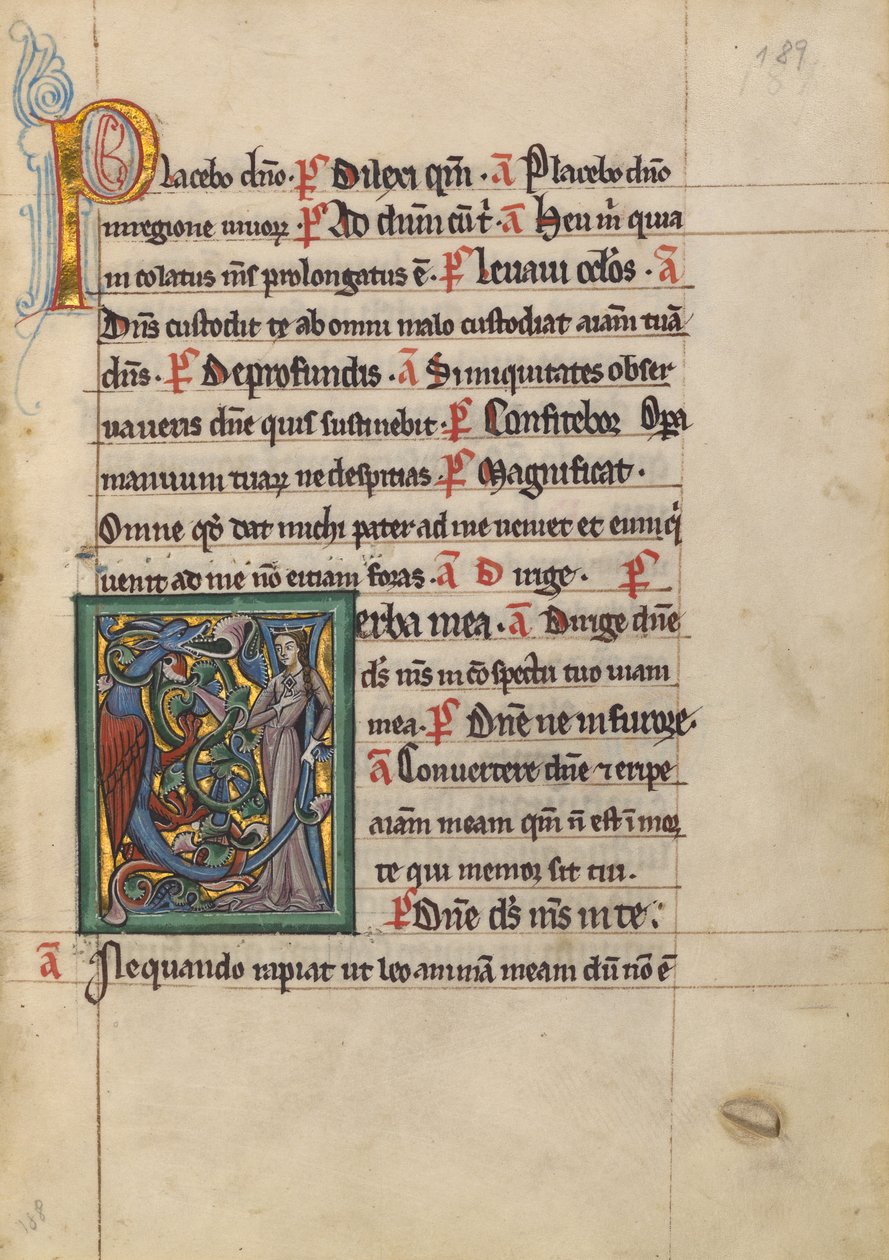 189
Placebo dn̄o · P̄s Dilexi qm̄ · ā Placebo dn̄o
in regione uiuoꝝ · P̄s Ad dn̄m cū t̄ · ā Heu m̄ quia
in colatus m̄s prolongatus ē · P̄s Leuaui oc̄los · ā
Dn̄s custodit te ab omni malo custodiat aīam tuā
dn̄s · P̄s De profundis · ā Si iniquitates obser
uaueris dn̄e quis sustinebit · P̄s Confiteboꝛ Opa
manuum tuaꝝ ne despitias · P̄s Magnificat ·
Omne qd̄ dat michi pater ad me ueniet et eum q̄
uenit ad me nō eitiam foꝛas · ā Dirige · P̄s
Verba mea · ā Dirige dn̄e
ds̄ m̄s in cōspectu tuo uiam
mea · P̄s Dn̄e ne in furoꝛe ·
ā Conuertere dn̄e ⁊ eripe
aīam meam qm̄ n̄ est ī moꝛ
te qui memoꝛ sit tui .
P̄s Dn̄e ds̄ m̄s in te .
ā Nequando rapiat ut leo animā meam dū nō ē
188